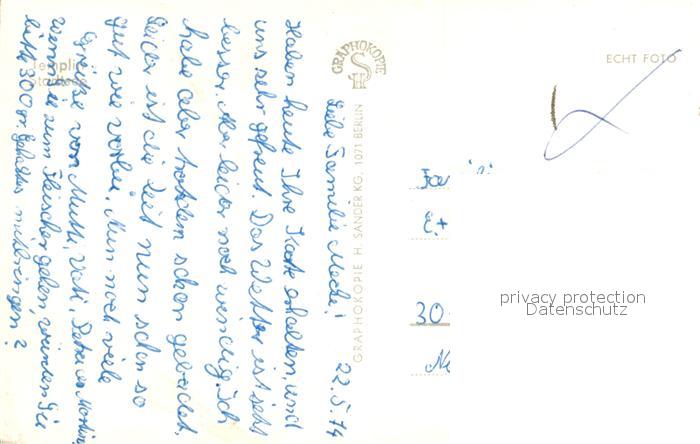 22.5.74
Liebe Familie Meche!
Haben heute Ihre Karte erhalten, und
uns sehr gefreut. Das Wetter ist jetzt
besser, aber leider noch windig. Ich
habe aber trotzdem schon gebadet.
Leider ist die Zeit nun schon so
gut wie vorbei. Nun noch viele
Grüße von Mutti, Vati, Petra u. Martin
Wenn sie zum Fleischer gehen, würden Sie
bitte 300 gr. Gehacktes mitbringen?
Templin
Stadtsee
GRAPHOKOPIE
SH
GRAPHOKOPIE H. SANDER KG, 1071 BERLIN
ECHT FOTO
Fam
30
privacy protection
Datenschutz